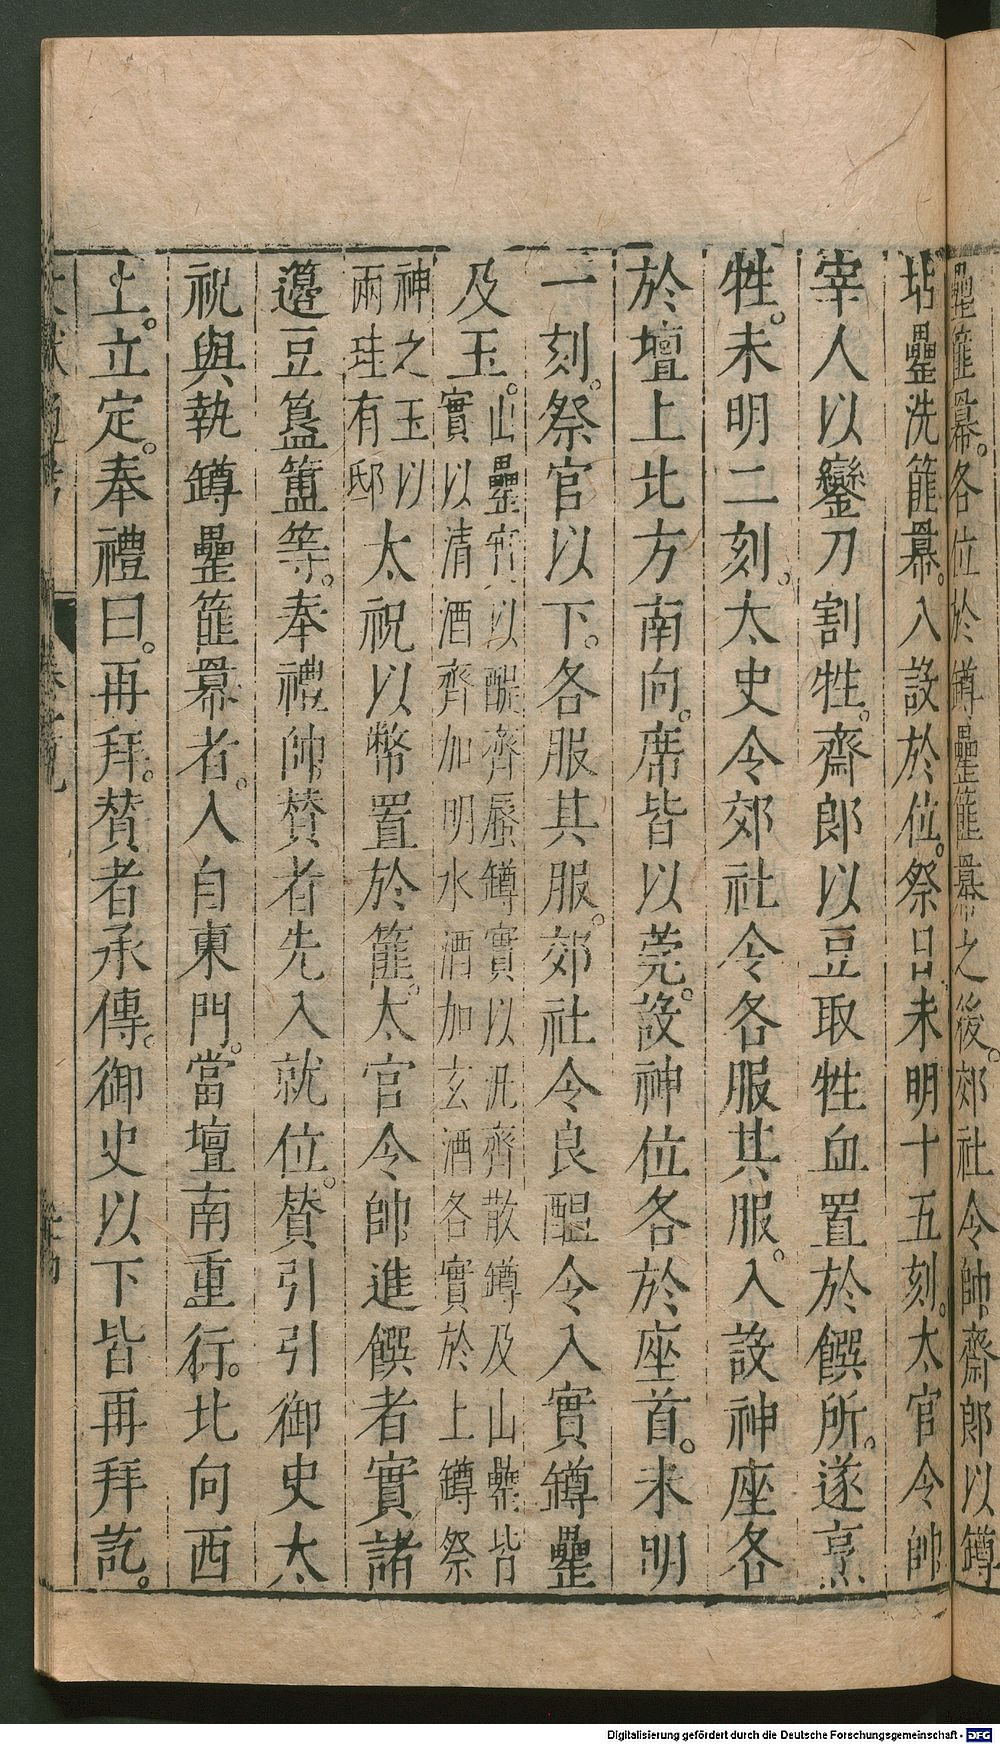 罍篚冪。各位於罇罍篚冪之後。郊社令帥齋郎以罇
坫罍洗篚冪。入設於位。祭日未明十五刻。太官令帥
宰人以鑾刀割牲。齋郎以豆取牲血置於饌所。遂烹
牲。未明二刻。太史令郊社令各服其服。入設神座各
於壇上北方南向。席皆以莞。設神位各於座首。未明
一刻。祭官以下。各服其服。郊社令良醞令入實罇罍
及玉。
山罍實以醍齊蜃罇實以汎齊散罇及山罍皆
實以清酒齊加明水酒加玄酒各實於上罇祭
神之玉以
兩珪有邸
太祝以幣置於篚。太官令帥進饌者實諸
籩豆簋簠等。奉禮帥贊者先入就位。贊引引御史太
祝與執罇罍篚冪者。入自東門。當壇南重行。北向西
上。立定。奉禮曰。再拜。贊者承傳。御史以下皆再拜訖。
Digitalisierung gefördert durch die Deutsche Forschungsgemeinschaft - DFG